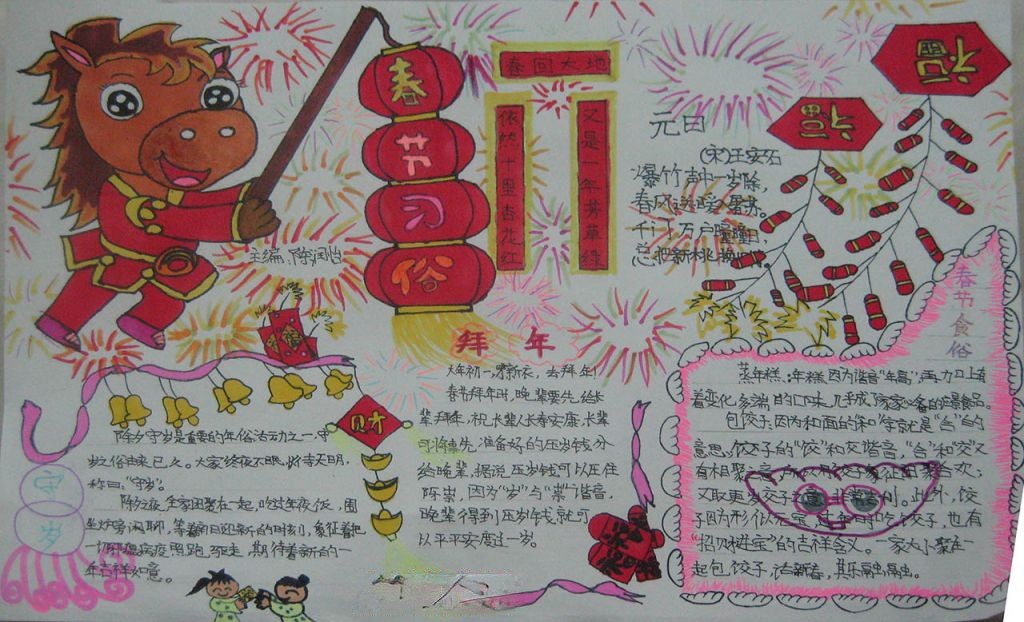 春
节
习
俗
春回大地
依然十里杏花红
又是一年芳草绿
福
福
元日
(宋)王安石
爆竹声中一岁除,
春风送暖入屠苏。
千门万户曈曈日,
总把新桃换旧符。
主编:陈润怡
财
守
岁
除夕守岁是重要的年俗活动之一,守
岁之俗由来已久。大家终夜不眠,以待天明,
称曰"守岁"。
除夕夜,全家团聚在一起,吃过年夜饭,围
坐炉旁闲聊,等着辞旧迎新的时刻,象征着把
一切邪瘟病疫照跑驱走,期待着新的一
年吉祥如意。
拜年
大年初一,穿新衣,去拜年!
春节拜年时,晚辈要先给长
辈拜年,祝长辈长寿安康,长辈
可将事先准备好的压岁钱分
给晚辈,据说压岁钱可以压住
邪祟,因为"岁"与"祟"谐音,
晚辈得到压岁钱就可
以平平安安度过一岁。
春节食俗
蒸年糕:年糕因为谐音"年高",再加上有
着变化多端的口味,几乎成了家家必备的应景食品。
包饺子:因为和面的"和"字就是"合"的
意思,饺子的"饺"和"交"谐音,"合"和"交"又
有相聚之意,所以用饺子象征团聚合欢,
又取更岁交子之意,非常吉利。此外,饺
子因为形似元宝,过年时吃饺子,也有
"招财进宝"的吉祥含义。一家大小聚在一
起包饺子,话新春,其乐融融。